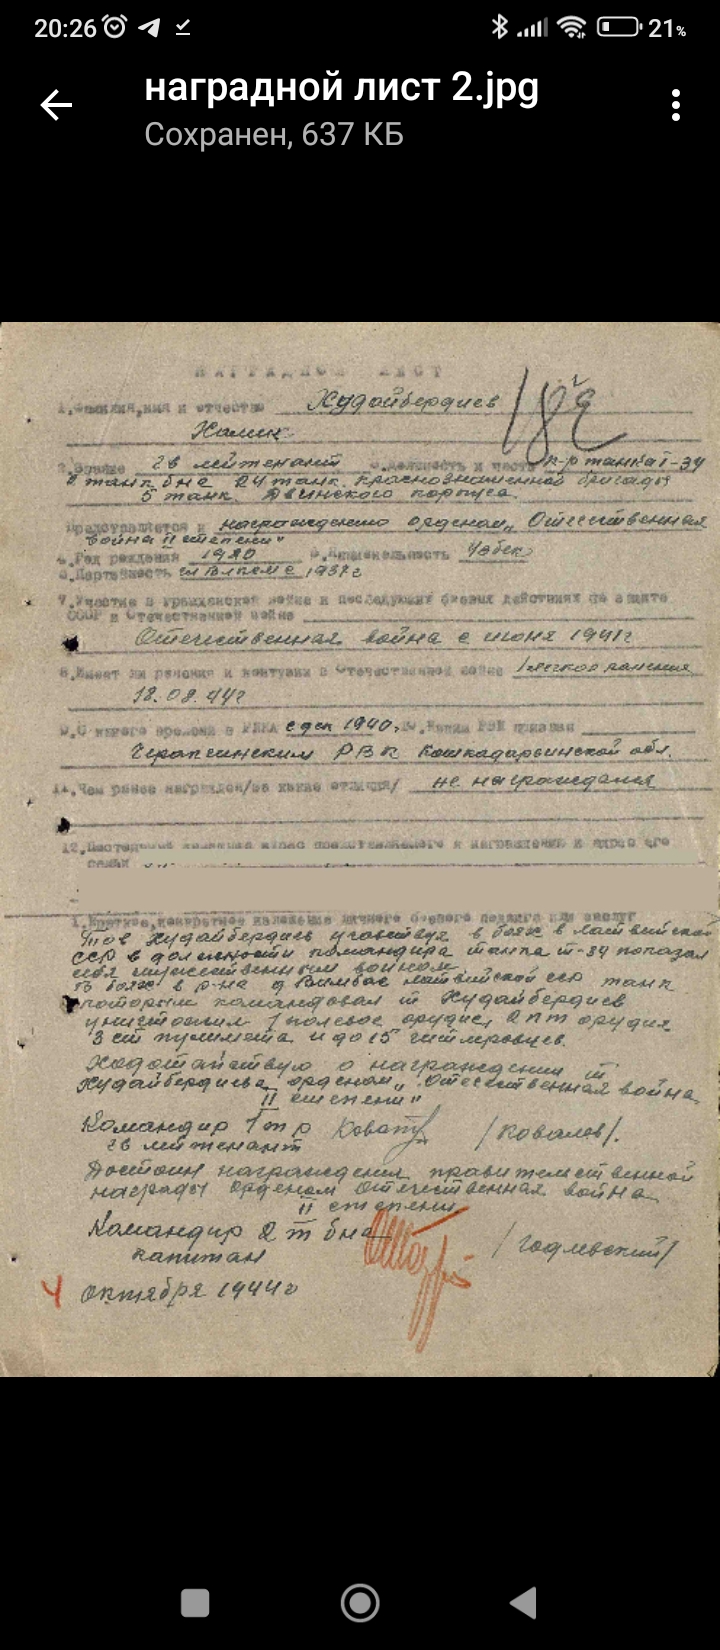 20:26
21%
наградной лист 2.jpg
Сохранен, 637 КБ
НАГРАДНОЙ ЛИСТ
1.Фамилия,имя и отчество Худайбердиев
Халик
2.Звание гв лейтенант 3.Должность и часть к-р танка Т-34
2 танк бна 24 танк. краснознаменной бригады
5 танк. Двинского корпуса.
Представляется к награждению орденом „Отечественная
война II степени"
4.Год рождения 1920 5.Национальность Узбек
6.Партийность 1937г
7.Участие в гражданской войне и последующих боевых действиях по защите
СССР и Отечественной войне
Отечественная война с июня 1941г
8.Имеет ли ранения и контузии в Отечественной войне 1 легкое ранение
18.08.44г
9.С какого времени в РККА с дек 1940г. 10.Каким РВК призван
РВК Кошкадарьинской обл.
11.Чем ранее награжден/за какие отличия/ не награждался
12.Постоянный домашний адрес представляемого к награждению и адрес его
семьи
1.Краткое,конкретное изложение личного боевого подвига или заслуг
Тов Худайбердиев участвуя в боях в Латвийской
ССР в должности командира танка т-34 показал
себя мужественным воином.
В боях в р-не д Вимбас Латвийской сср танк
которым командовал т Худайбердиев
уничтожил 1 полевое орудие, 2 пт орудия
3 ст пулемета и до 15 гитлеровцев.
Ходотайствую о награждении т
Худайбердиева орденом „Отечественная война
II степени"
Командир 1 т р /Ковалев/.
гв лейтенант
Достоин награждения правительственной
награды орденом Отечественная война
II степени
Командир 2 т бна /Годлевский/
капитан
4 октября 1944г